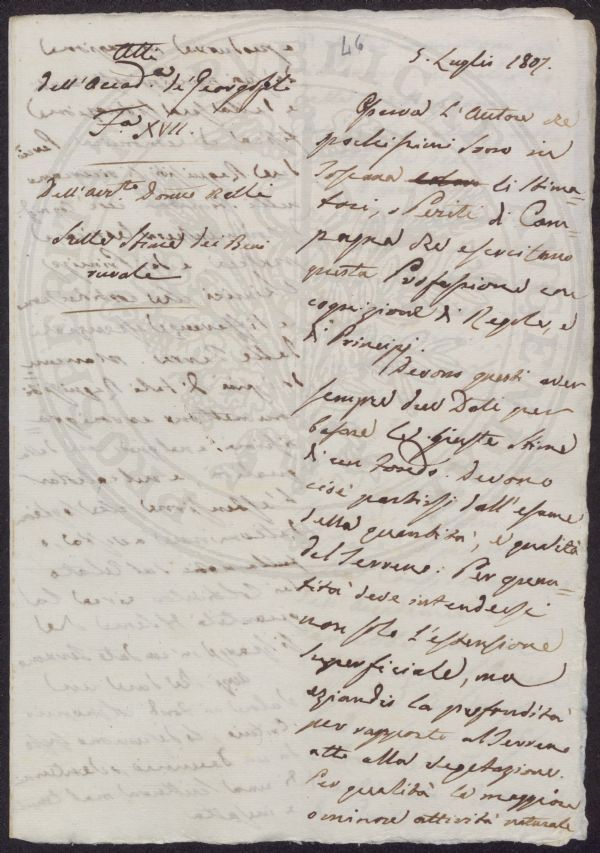 46
5. Luglio 1807.
Atti
dell'Accad.a de' Georgofili
F.a XVII.
Dell'
Sulle Stime dei Beni
rurali
Osserva l'Autore che
pochissimi sono in
Toscana li Stima-
tori, o Periti di Cam-
pagna che esercitano
questa Professione con
cognizione di Regole, e
di Principj.
Devono questi aver
sempre due Dati per
basare le giuste stime
di un Fondo. Devono
cioè partirsi dall'esame
della quantità, e qualità
del Terreno. Per quan-
tità deve intendersi
non solo l'estensione
superficiale, ma
eziandio la profondità
per rapporto al Terreno
atto alla vegetazione.
Per qualità la maggiore
o minore attività naturale